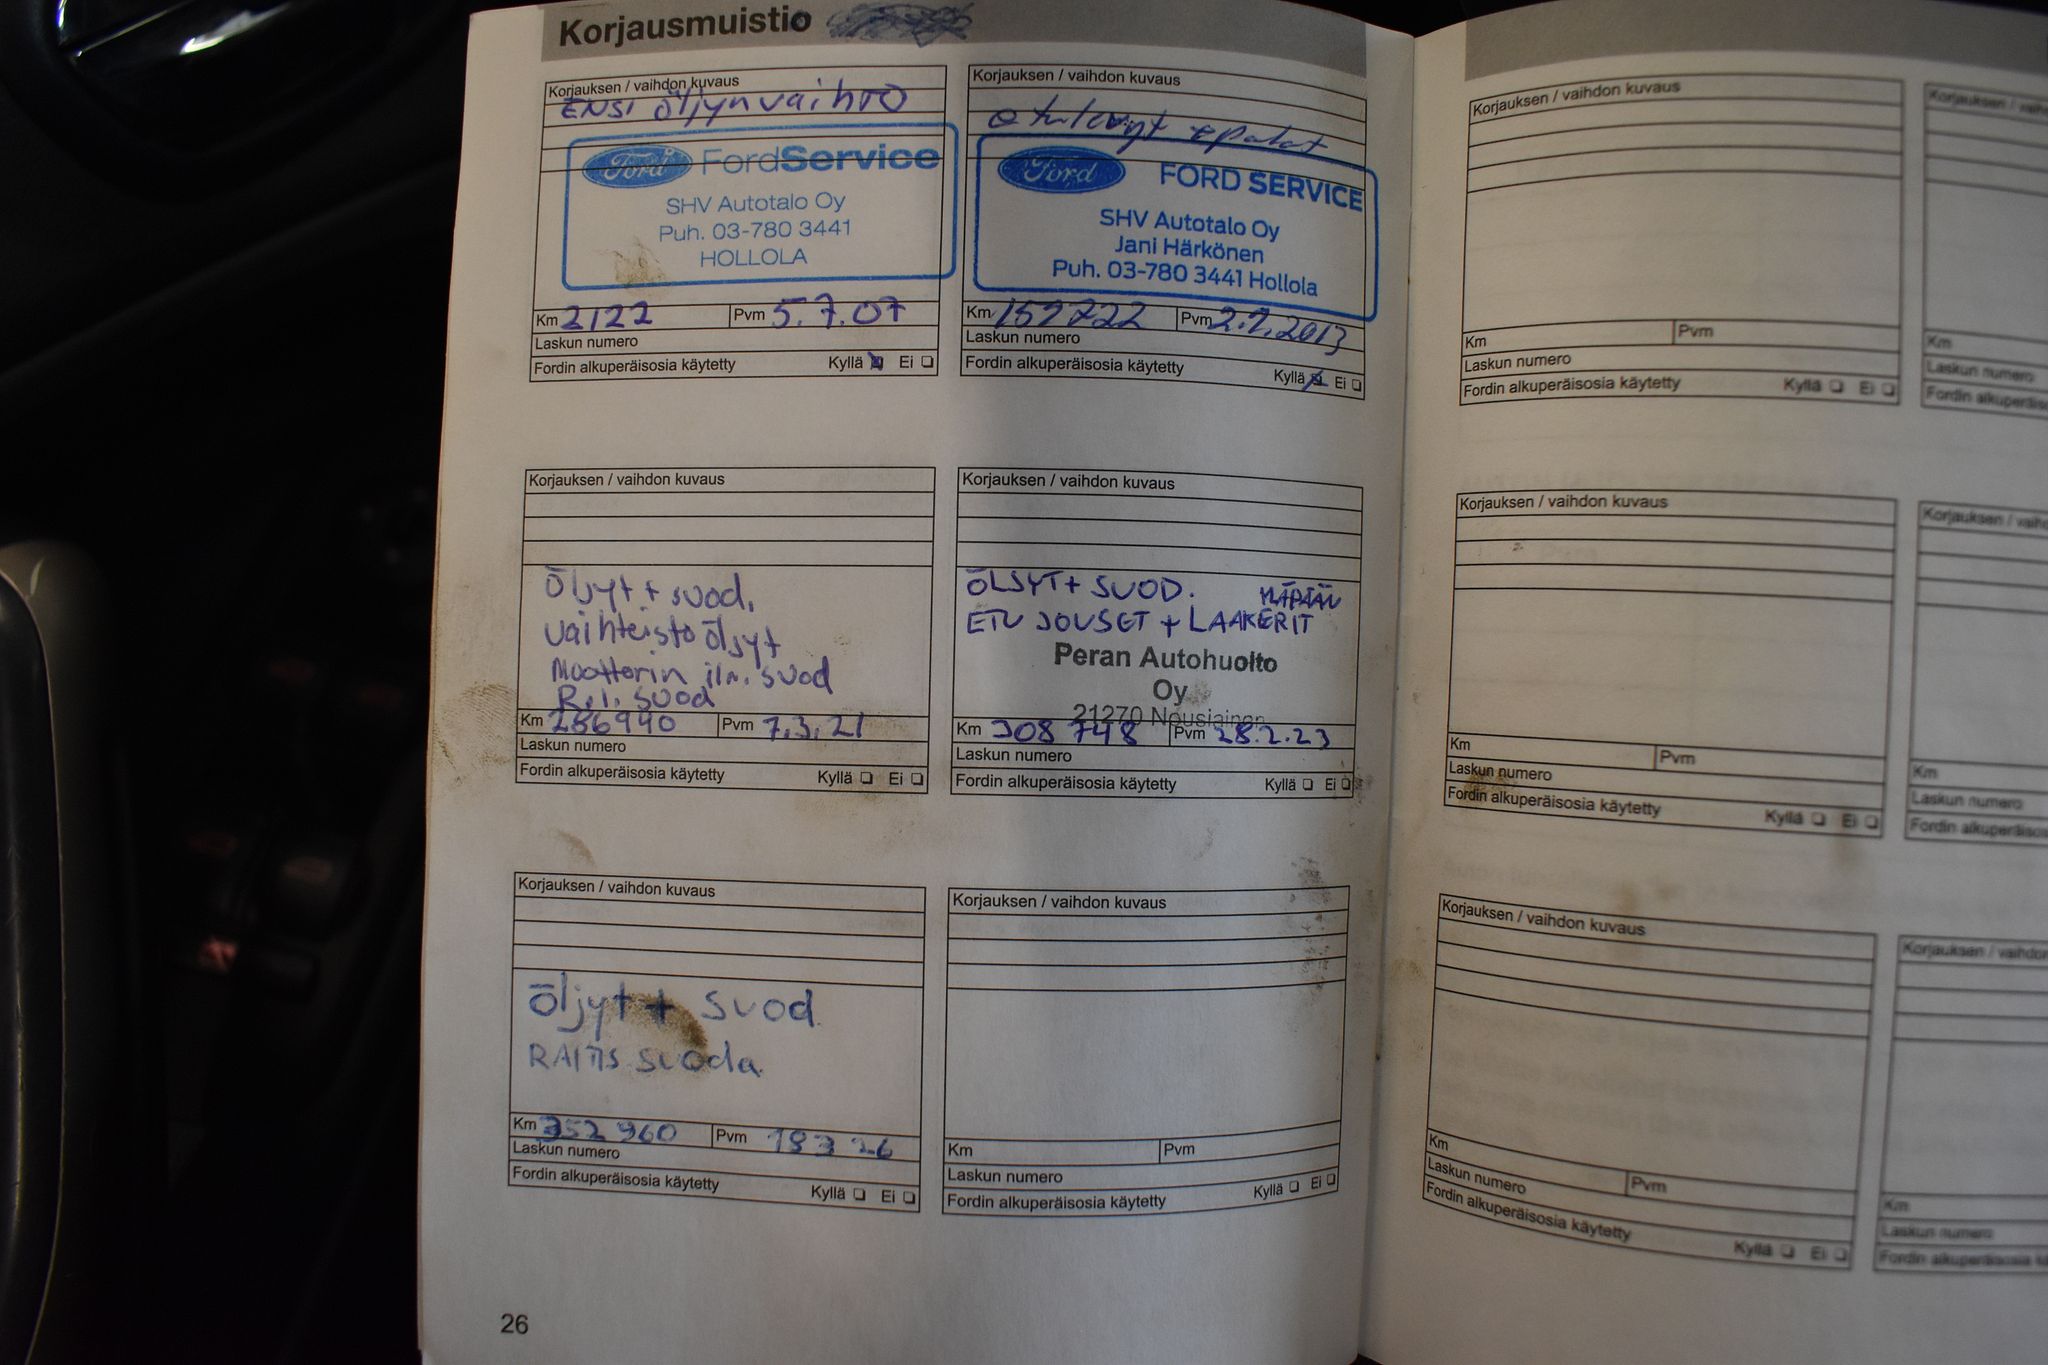 Korjausmuistio
Korjauksen / vaihdon kuvaus
ENSI öljynvaihto
Ford FordService
SHV Autotalo Oy
Puh. 03-780 3441
HOLLOLA
Km 2122 Pvm 5.7.07
Laskun numero
Fordin alkuperäisosia käytetty Kyllä Ei
Korjauksen / vaihdon kuvaus
etulevyt + palat
Ford FORD SERVICE
SHV Autotalo Oy
Jani Härkönen
Puh. 03-780 3441 Hollola
Km Pvm 2.7.2013
Laskun numero
Fordin alkuperäisosia käytetty Kyllä Ei
Korjauksen / vaihdon kuvaus
Öljyt + suod.
vaihteisto öljyt
Moottorin ilm. suod
R.i. suod
Km 286940 Pvm 7.3.21
Laskun numero
Fordin alkuperäisosia käytetty Kyllä Ei
Korjauksen / vaihdon kuvaus
ÖLJYT + SUOD.
ETU JOUSET + YLÄPÄÄN LAAKERIT
Peran Autohuolto
Oy
21270 Nousiainen
Km 308 748 Pvm 28.2.23
Laskun numero
Fordin alkuperäisosia käytetty Kyllä Ei
Korjauksen / vaihdon kuvaus
Öljyt + suod.
RAITIS suoda
Km 352 960 Pvm 18 3 26
Laskun numero
Fordin alkuperäisosia käytetty Kyllä Ei
Korjauksen / vaihdon kuvaus
Km Pvm
Laskun numero
Fordin alkuperäisosia käytetty Kyllä Ei
26
Korjauksen / vaihdon kuvaus
Km Pvm
Laskun numero
Fordin alkuperäisosia käytetty Kyllä Ei
Korjauksen / vaih
Km
Laskun numero
Fordin alkuperäis
Korjauksen / vaihdon kuvaus
Km Pvm
Laskun numero
Fordin alkuperäisosia käytetty Kyllä Ei
Korjauksen / vaih
Km
Laskun numero
Fordin alkuperäiso
Korjauksen / vaihdon kuvaus
Km Pvm
Laskun numero
Fordin alkuperäisosia käytetty Kyllä Ei
Korjauksen / vaihdon
Km
Laskun numero
Fordin alkuperäisosia